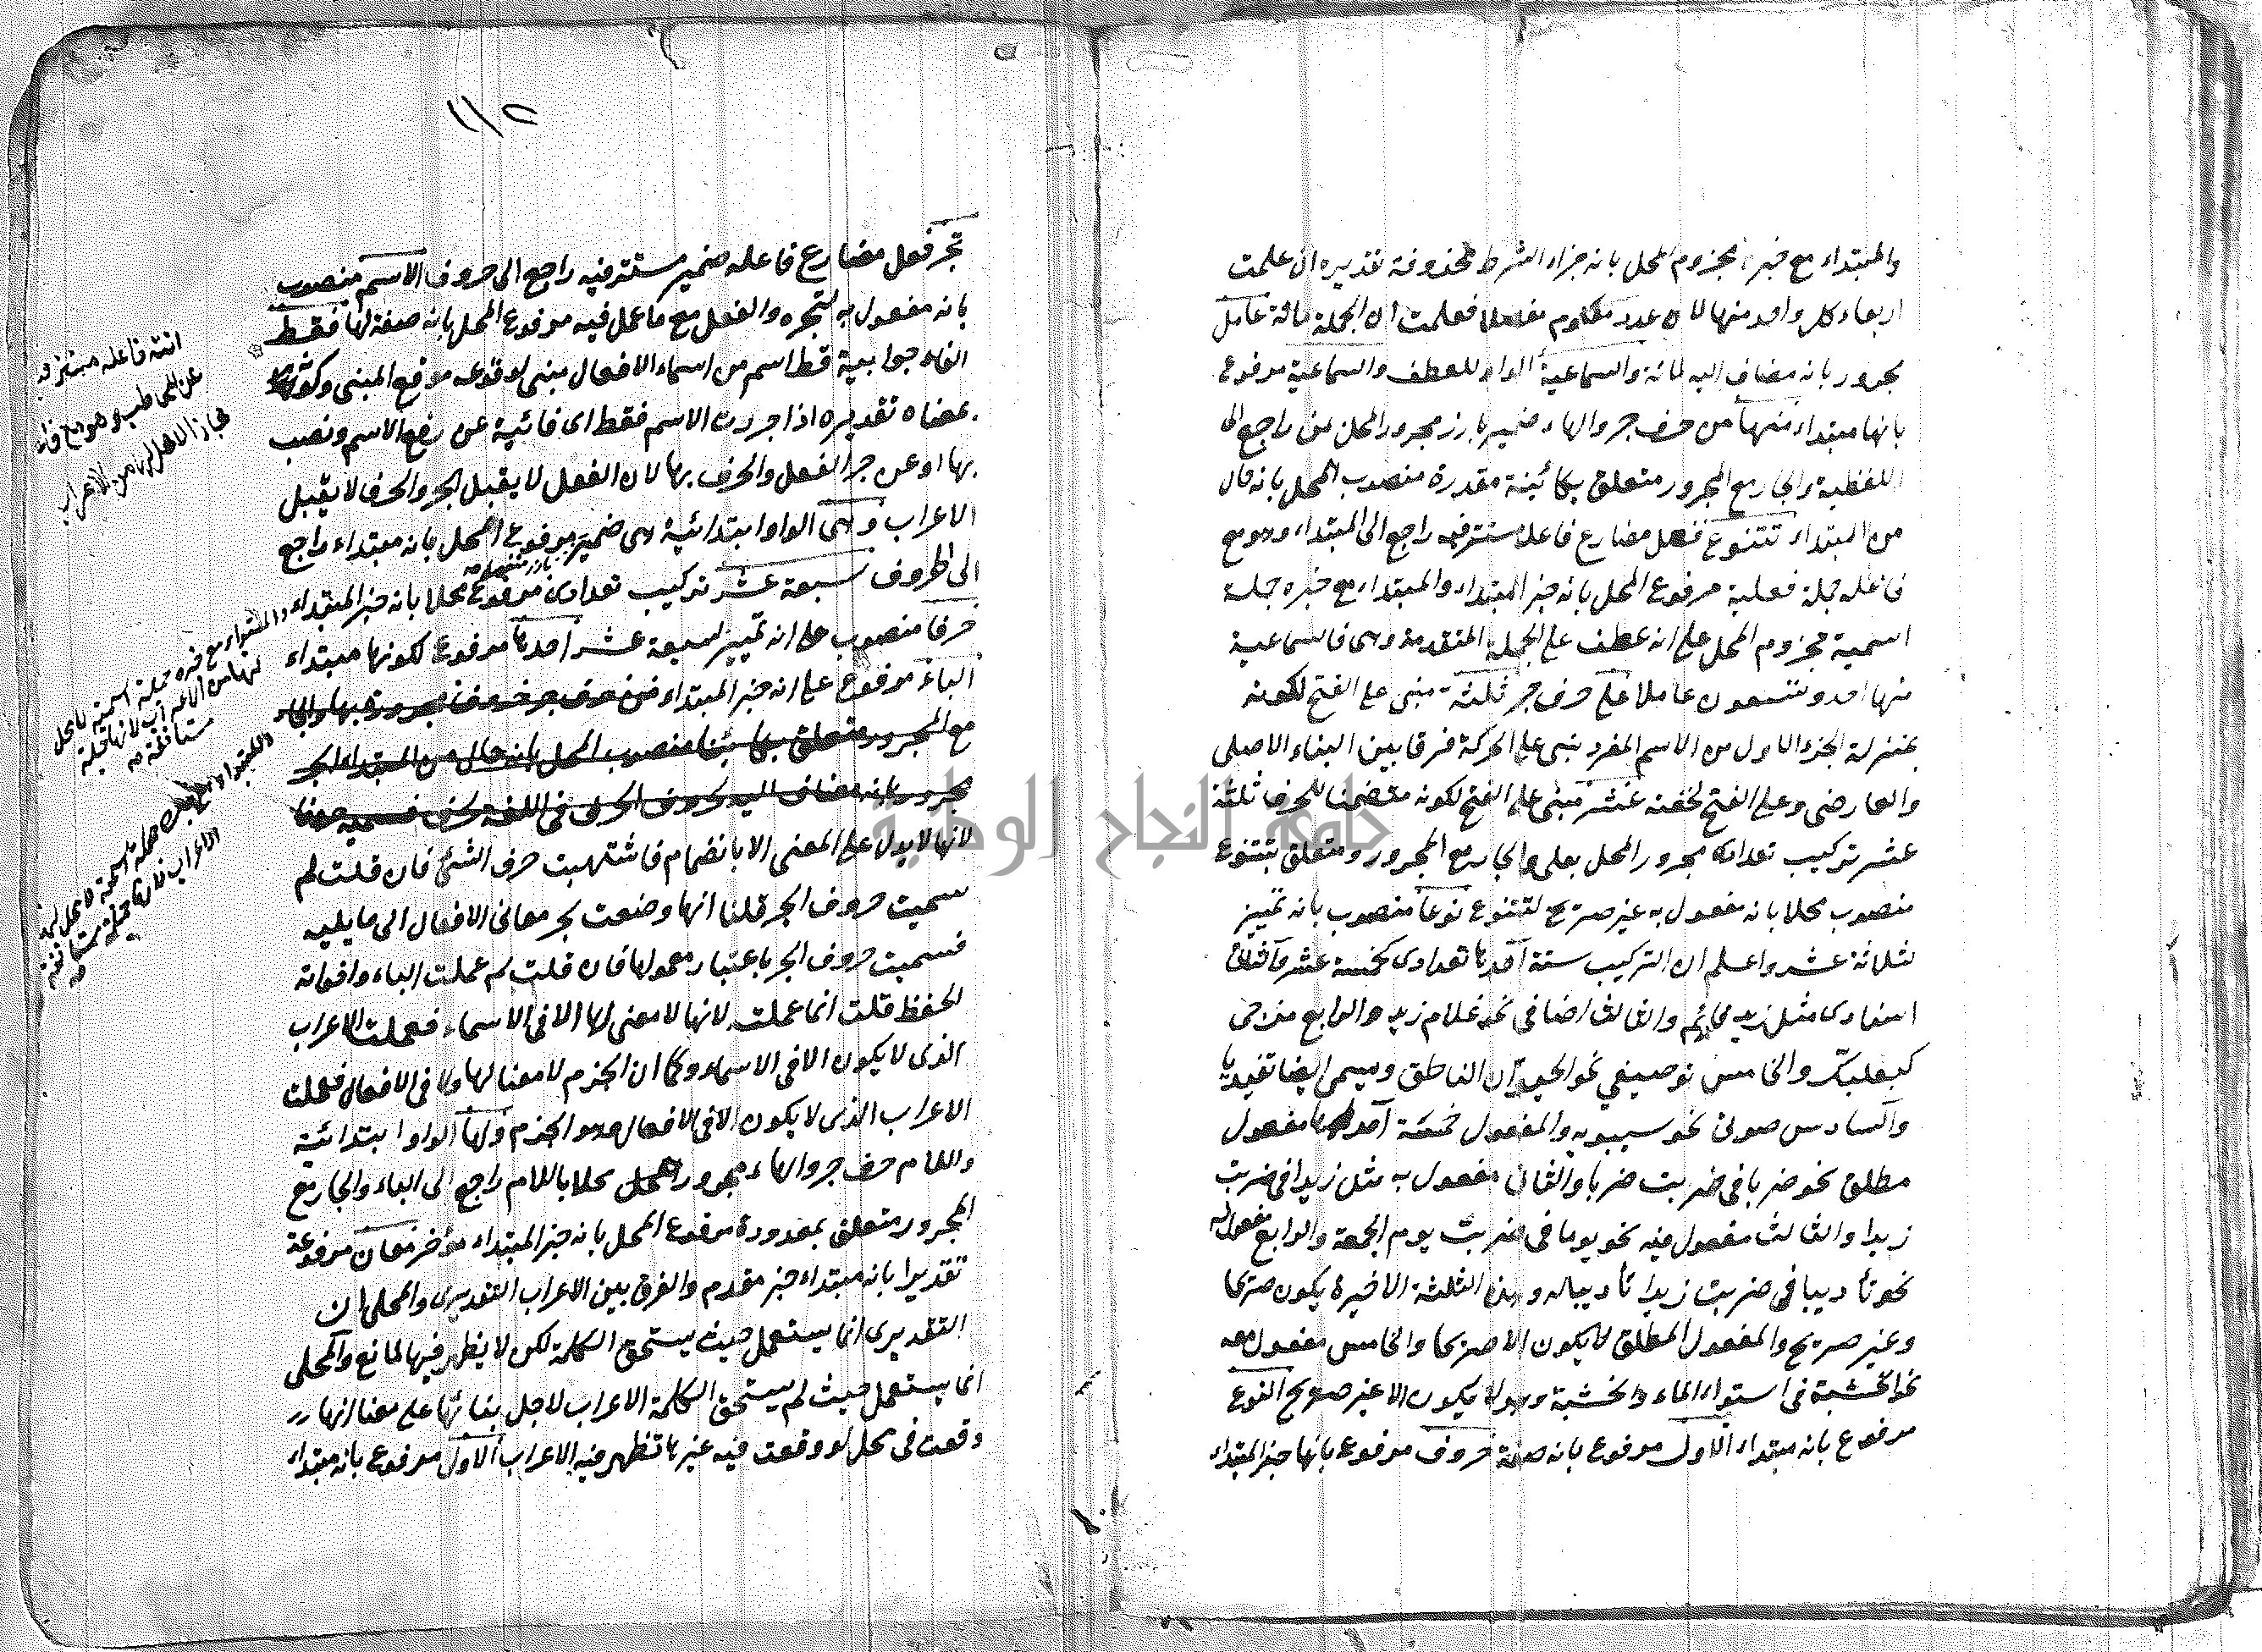 والمبتداء مع خبره مجزوم المحل بانه جزاء الشرط محذوفة تقديره ان علمت
اربعاء كل واحد منها لان عدد معلوم مفصلا فعلمت ان الجملة مائة عامل
مجرور بانه مضاف اليه لمائة والسماعية الواو للعطف والسماعية مرفوع
بانها مبتداء منها من حرف جر والهاء ضمير بارز مجرور المحل بمن راجع الى
اللفظية والجار مع المجرور متعلق بكائينة مقدرة منصوب المحل بانه حال
من المبتداء تتنوع فعل مضارع فاعله مستتر فيه راجع الى المبتداء وهو مع
فاعله جملة فعلية مرفوع المحل بانه خبر المبتداء والمبتداء مع خبره جملة
اسمية مجزوم المحل على انه عطف على الجملة المتقدمة وهى فالسماعية
منها احد وتسعون عاملا على حرف جر ثلثة مبنى على الفتح لكونه
بمنزلة الجزء الاول من الاسم المفرد بنى على الحركة فرقا بين البناء الاصلى
والعارضى وعلى الفتح لخفته عشر مبنى على الفتح لكونه متضمنا للحرف ثلثة
عشر تركيب تعدادى مجرور المحل بعلى والجار مع المجرور متعلق بتتنوع
منصوب محلا بانه مفعول به غير صريح لتتنوع نوعا منصوب بانه تمييز
لثلاثة عشر واعلم ان التركيب ستة احدها تعدادى كخمسة عشر والثانى
اسنادى مثل زيد قائم والثالث اضافى نحو غلام زيد والرابع مزجى
كبعلبك والخامس توصيفي نحو الحيوان الناطق ويسمى ايضا تقييديا
والسادس صوتى نحو سيبويه والمفعول خمسة احدها مفعول
مطلق نحو ضربا فى ضربت ضربا والثانى مفعول به مثل زيدا فى ضربت
زيدا والثالث مفعول فيه نحو يوما فى ضربت يوم الجمعة والرابع مفعول له
نحو تأديبا فى ضربت زيدا تأديباله وهذه الثلثة الاخيرة يكون صريحا
وغير صريح والمفعول المطلق لا يكون الا صريحا والخامس مفعول معه
نحو الخشبة فى استواء الماء والخشبة وهو لا يكون الا غير صريح النوع
مرفوع بانه مبتداء الاول مرفوع بانه صفة حروف مرفوع بانها خبر المبتداء
١١٥
تجر فعل مضارع فاعله ضمير مستتر فيه راجع الى حروف الاسم منصوب
بانه مفعول به لتجره والفعل مع ما عمل فيه مرفوع المحل بانه صفة لها فقط
الفاء جوابية قط اسم من اسماء الافعال مبنى لوقوعه موقع المبنى وكونه
بمعناه تقديره اذا جررت الاسم فقط اى فائتية عن رفع الاسم ونصب
بها او عن جر الفعل والحرف بها لان الفعل لا يقبل الجر والحرف لا يقبل
الاعراب وهى الواو ابتدائية هى ضمير مرفوع المحل بانه مبتداء راجع
بارز منفصل
الى الحروف سبعة عشر تركيب تعدادى مرفوع محلا بانه خبر المبتداء
حرفا منصوب على انه تمييز لسبعة عشر احدها مرفوع لكونها مبتداء
الباء مرفوع على انه خبر المبتداء
مع المجرور متعلق بكائنا منصوب المحل بانه حال من المبتداء الجر
مجرور بانه مضاف اليه لحروف الحرف فى اللغة
لانها لا يدل على المعنى الا بانضمام فاشتهت حرف الشئ فان قلت لم
سميت حروف الجر قلنا انها وضعت لجر معانى الافعال الى ما يليه
فسميت حروف الجر باعتبار معمولها فان قلت لم عملت الباء واخواته
الخفظ قلت انما عملت لانها لا معنى لها الا فى الاسماء فعملت الاعراب
الذى لا يكون الا فى الاسماء وكما ان الجزم لا معنا لها الا فى الافعال فعملت
الاعراب الذى لا يكون الا فى الافعال وهو الجزم ولها الواو ابتدائية
واللام حرف جر والهاء مجرور المحل محلا باللام راجع الى الباء والجار مع
المجرور متعلق بمعدودة مرفوع المحل بانه خبر المبتداء مؤخر معان مرفوعة
تقديرا بانه مبتداء خبر مقدم والفرق بين الاعراب التقديرى والمحلى ان
التقديرى انما يستعمل حيث يستحق الكلمة لكن لا يظهر فيها لمانع والمحلى
انما يستعمل حيث لم يستحق الكلمة الاعراب لاجل بنائها على معنا انها
وقعت فى محل لو وقعت فيه غيرها تظهر فيه الاعراب الاول مرفوع بانه مبتداء
انته فاعله مستتر فيه
عن المخاطب وهو مع فاء
مجاز لا محل لها من الاعراب
والمبتداء مع خبره جملة اسمية لا محل
لها من الاعراب لانها جملة
مستانفة
والمبتداء مع خبره جملة اسمية لا محل لها
الاعراب لان جملة مستانفة
جامعة النجاح الوطنية